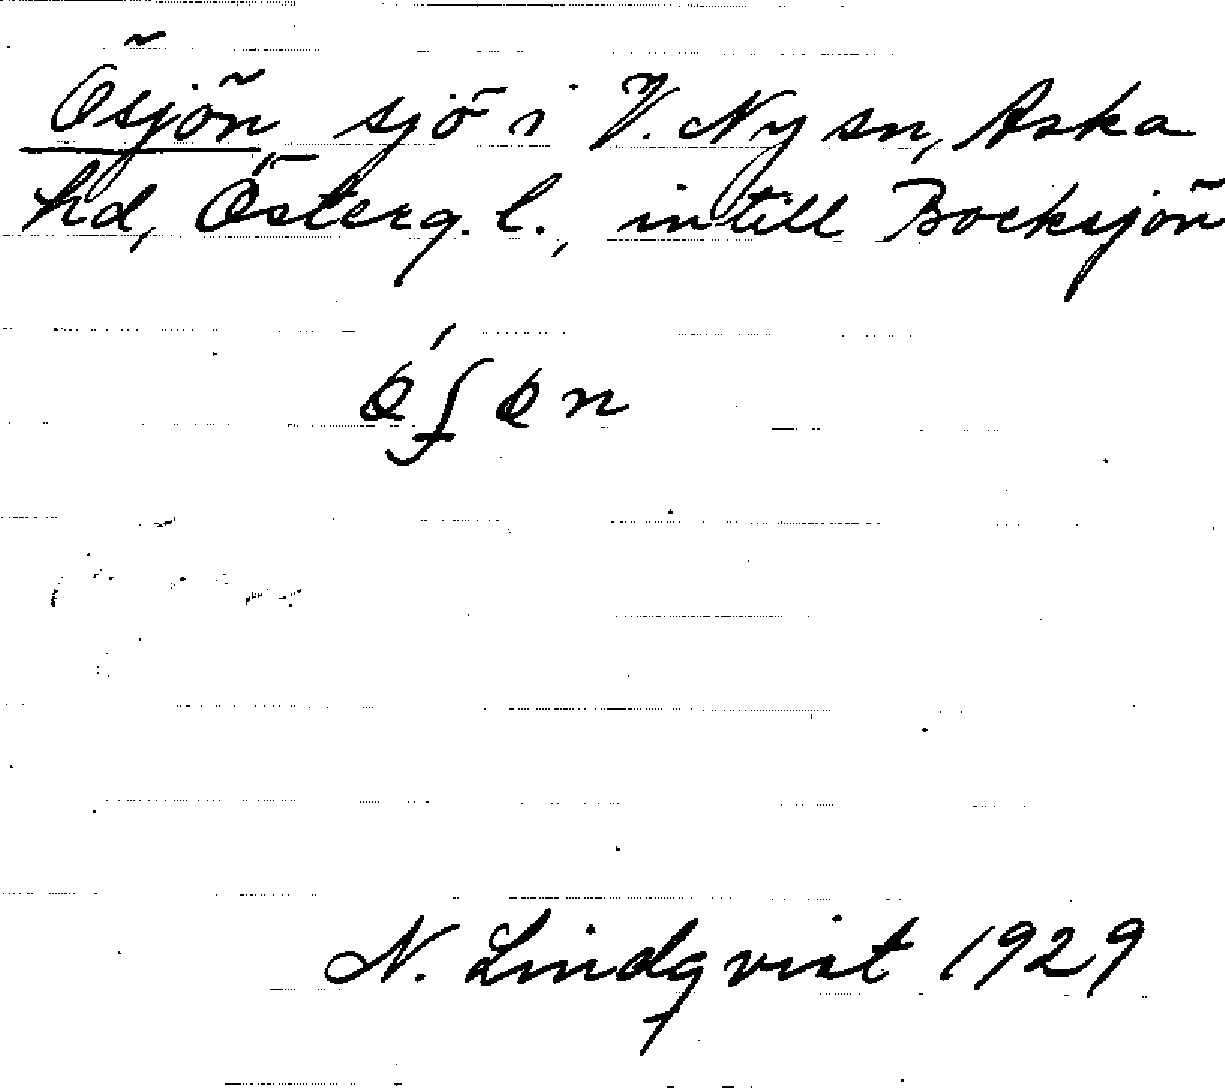 Ösjön sjö i V. Ny sn, Aska
hd, Österg. l., intill Bocksjön
N. Lindqvist 1929